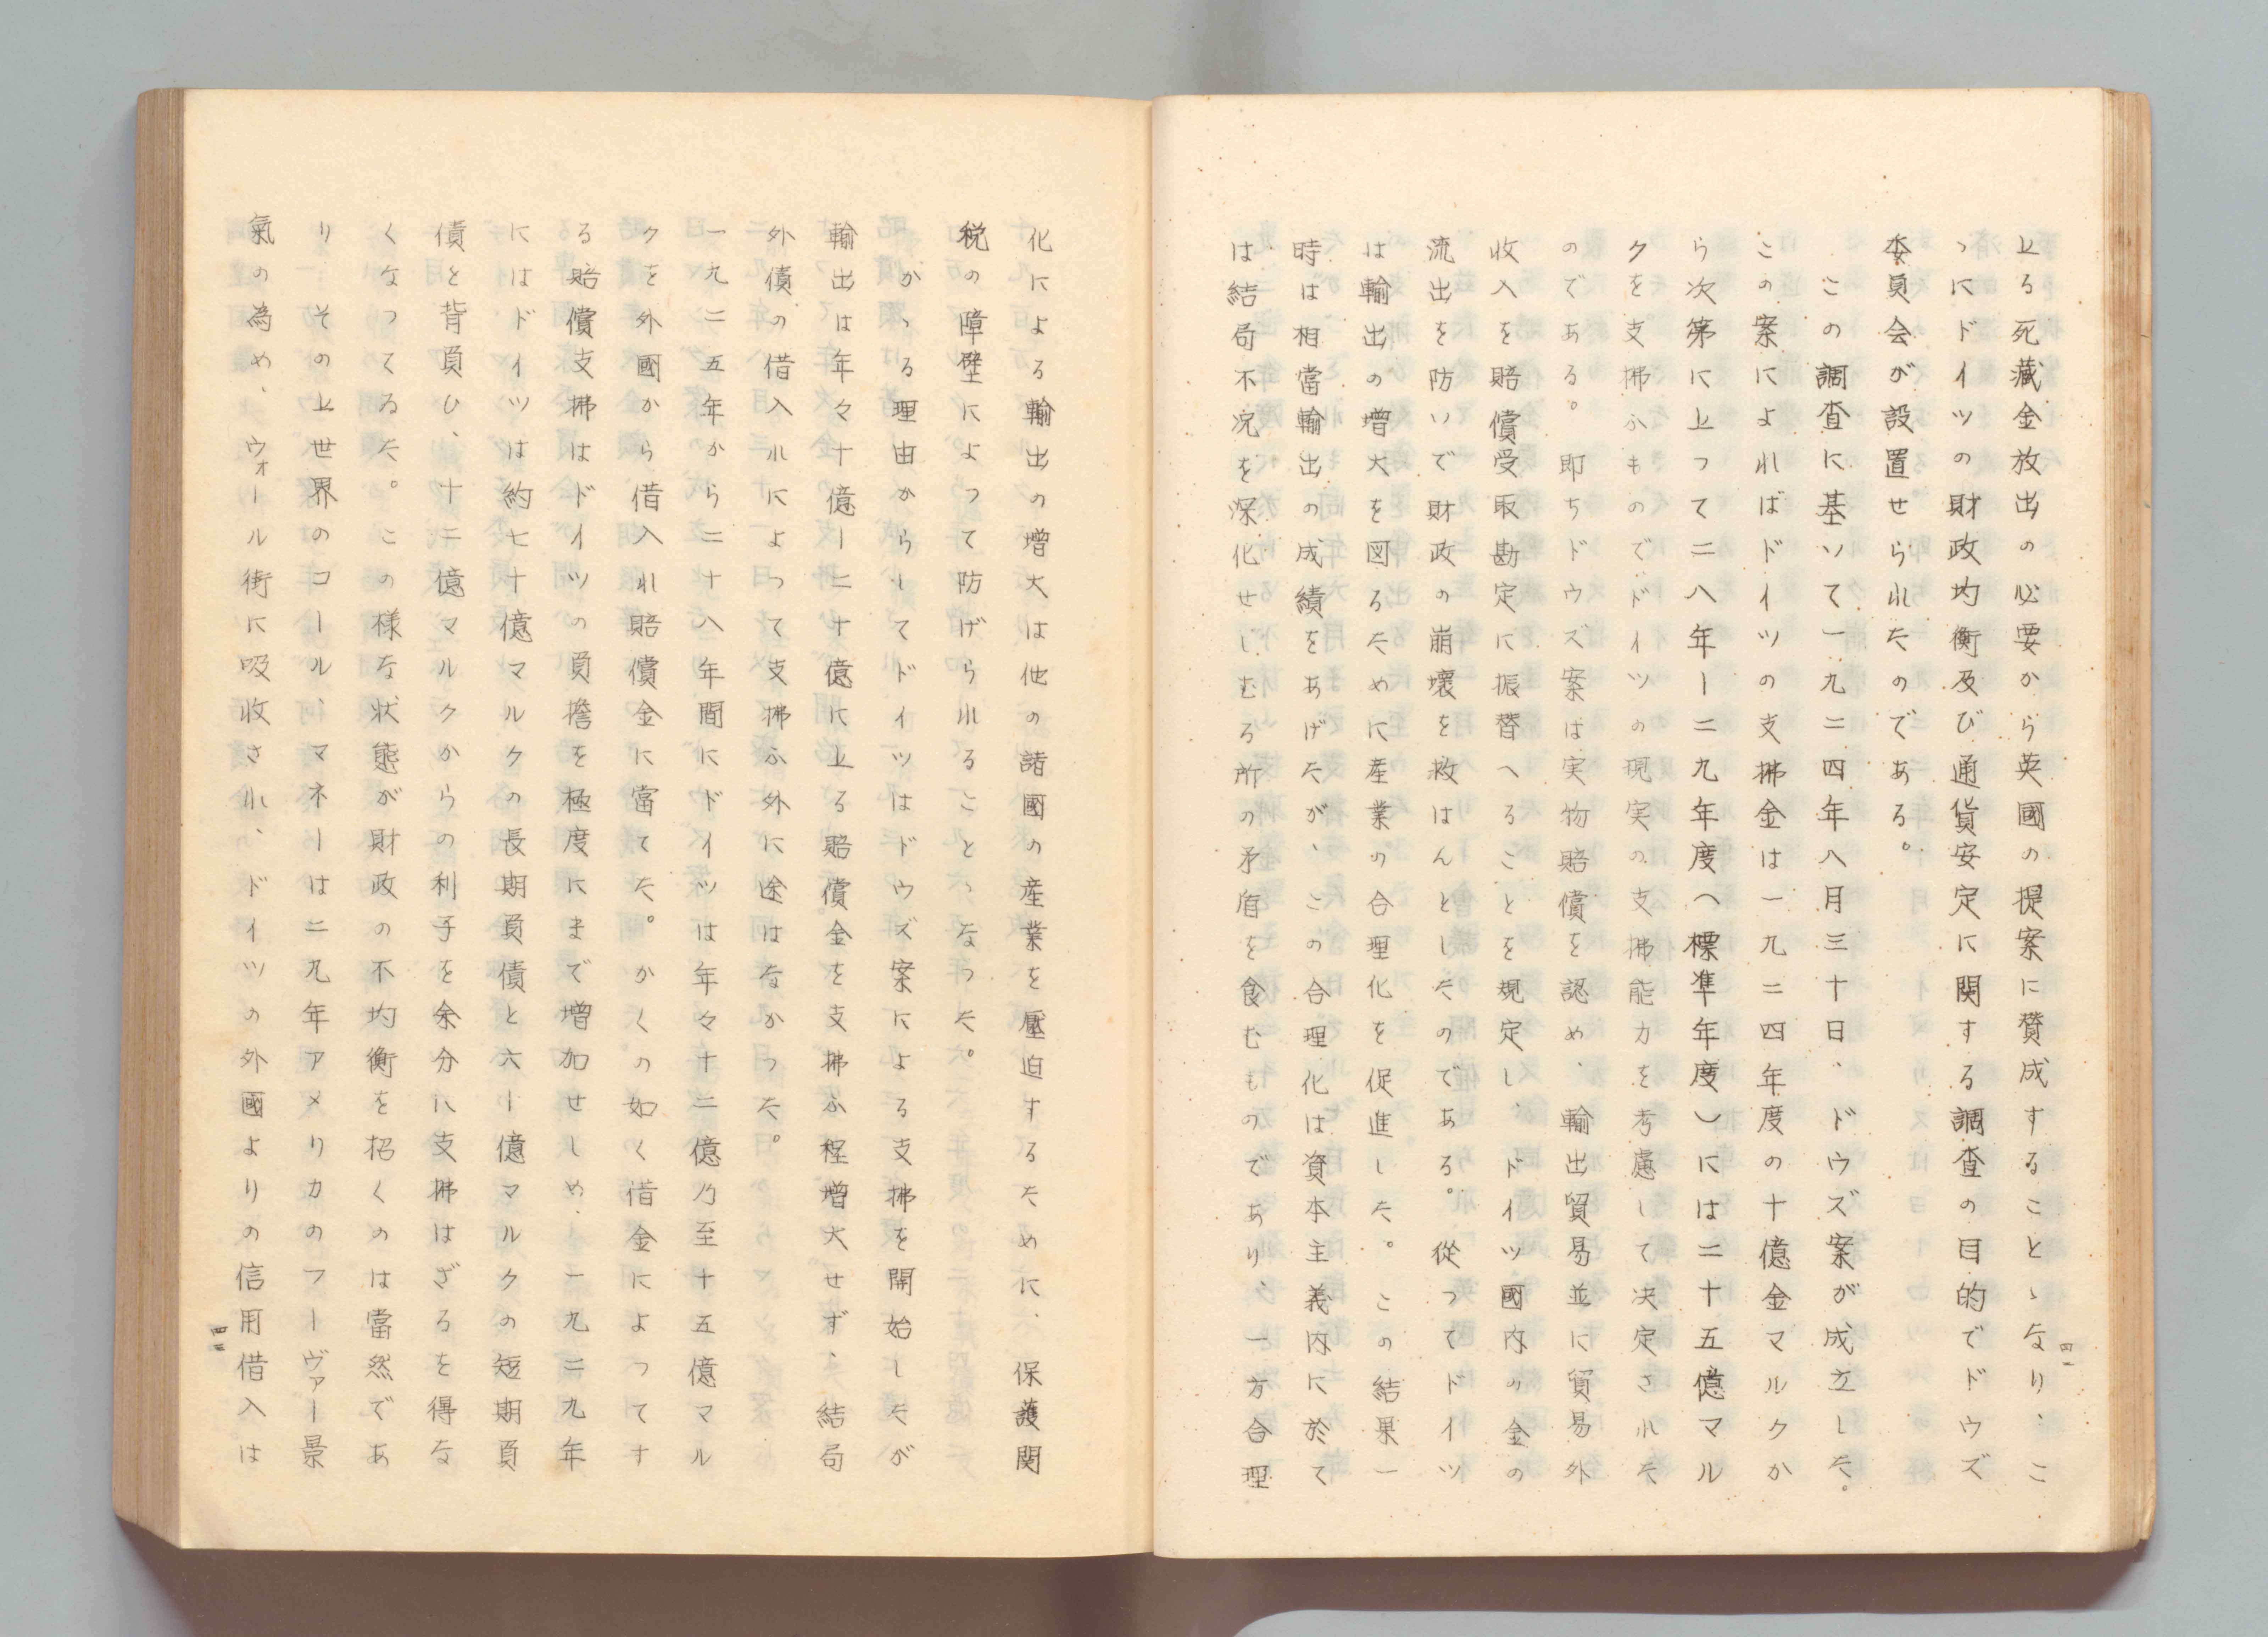 上る死藏金放出の必要から英國の提案に賛成することゝなり、こ
ゝにドイツの財政均衡及び通貨安定に関する調査の目的でドウズ
委員会が設置せられたのである。
この調査に基ソて一九二四年八月三十日、ドウズ案が成立した。
この案によればドイツの支拂金は一九二四年度の十億金マルクか
ら次第に上つて二八年ー二九年度(標準年度)には二十五億マル
クを支拂ふものでドイツの現実の支拂能力を考慮して决定された
のである。即ちドウズ案は実物賠償を認め、輸出貿易並に貿易外
收入を賠償受取勘定に振替へることを規定し、ドイツ國内の金の
流出を防いで財政の崩壊を救はんとしたのである。從つてドイツ
は輸出の増大を図るために産業の合理化を促進した。この結果一
時は相當輸出の成績をあげたが、この合理化は資本主義内に於て
は結局不况を深化せしむる所の矛盾を含むものであり、一方合理
四二
化による輸出の増大は他の諸國の産業を壓迫するために、保護関
税の障壁によつて防げられることゝなつた。
かゝる理由からしてドイツはドウズ案による支拂を開始したが
輸出は年々十億ー二十億に上る賠償金を支拂ふ程増大せず、結局
外債の借入れによつて支拂ふ外に途はなかつた。
一九二五年から二十八年間にドイツは年々十二億乃至十五億マル
クを外國から借入れ賠償金に當てた。かくの如く借金によつてす
る賠償支拂はドイツの負擔を極度にまで増加せしめ、一九二九年
にはドイツは約七十億マルクの長期負債と六ー億マルクの短期負
債を背負ひ、十二億マルクからの利子を余分に支拂はざるを得な
くなつてゐた。この様な状態が財政の不均衡を招くのは當然であ
り、その上世界のコール、マネーは二九年アメリカのフーヴァー景
氣の為め、ウォール街に吸收され、ドイツの外國よりの信用借入は
四三